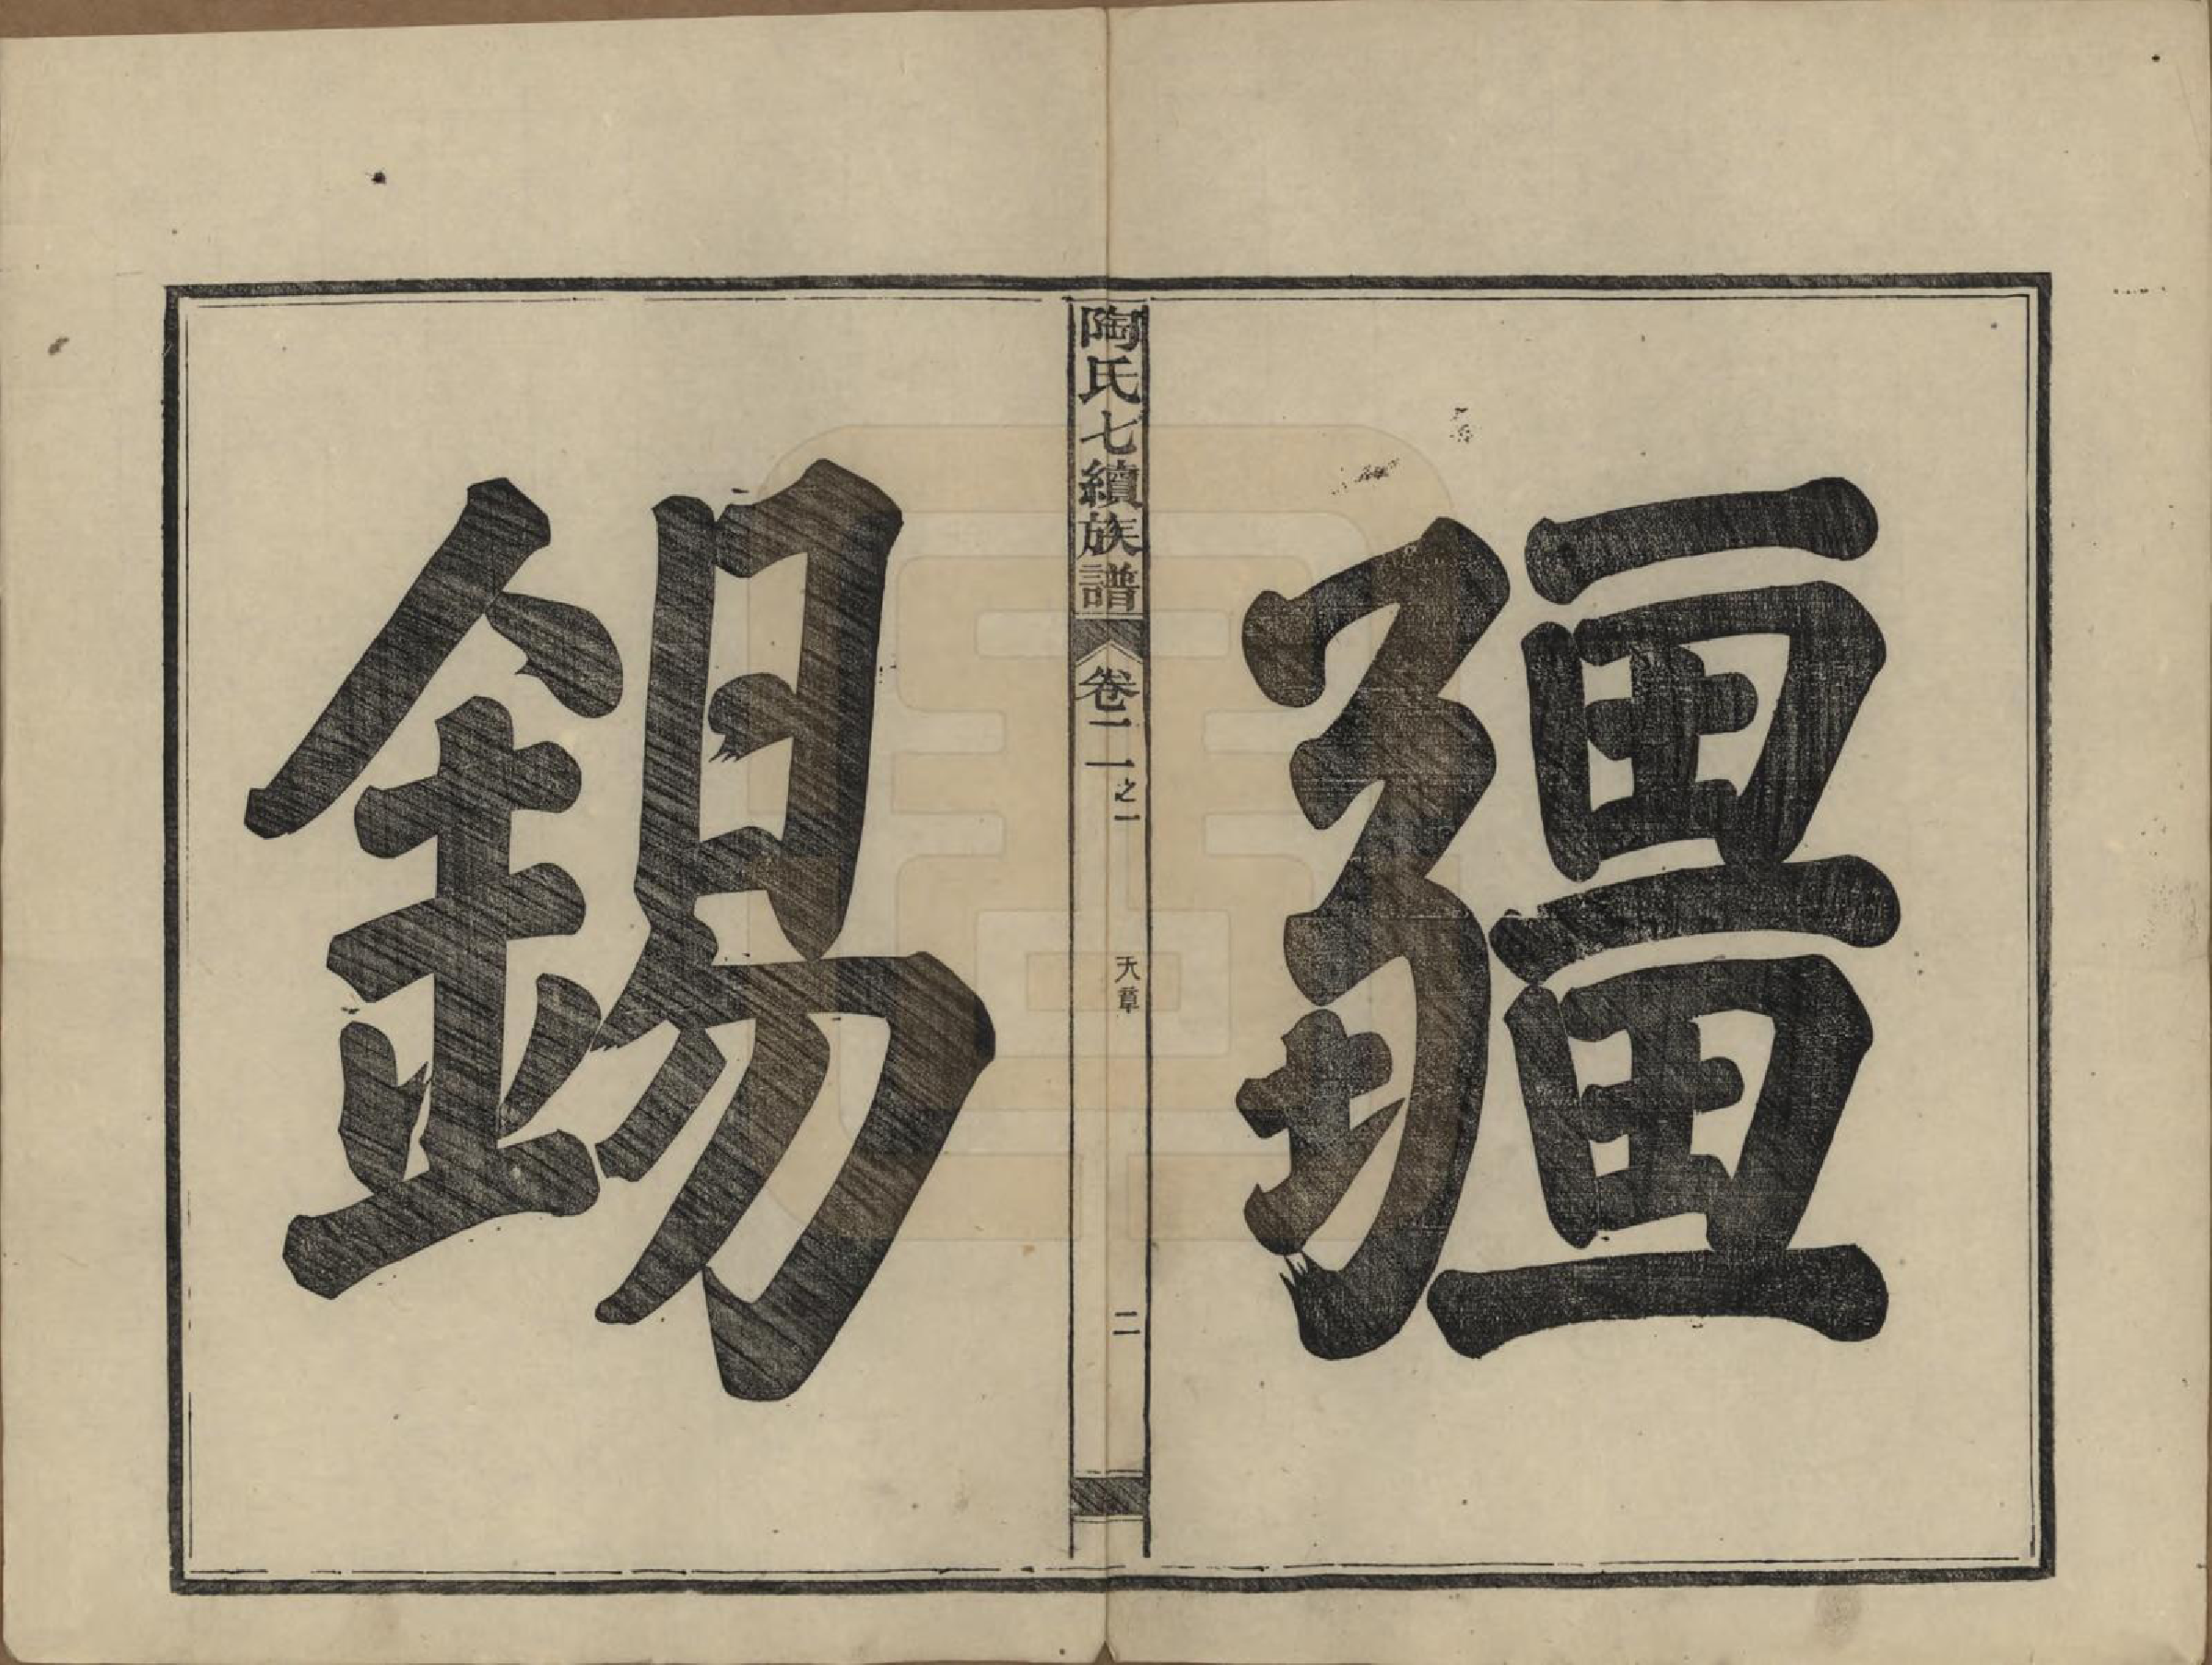 疆
陶氏七續族譜
卷二
之一
天章
二
錫